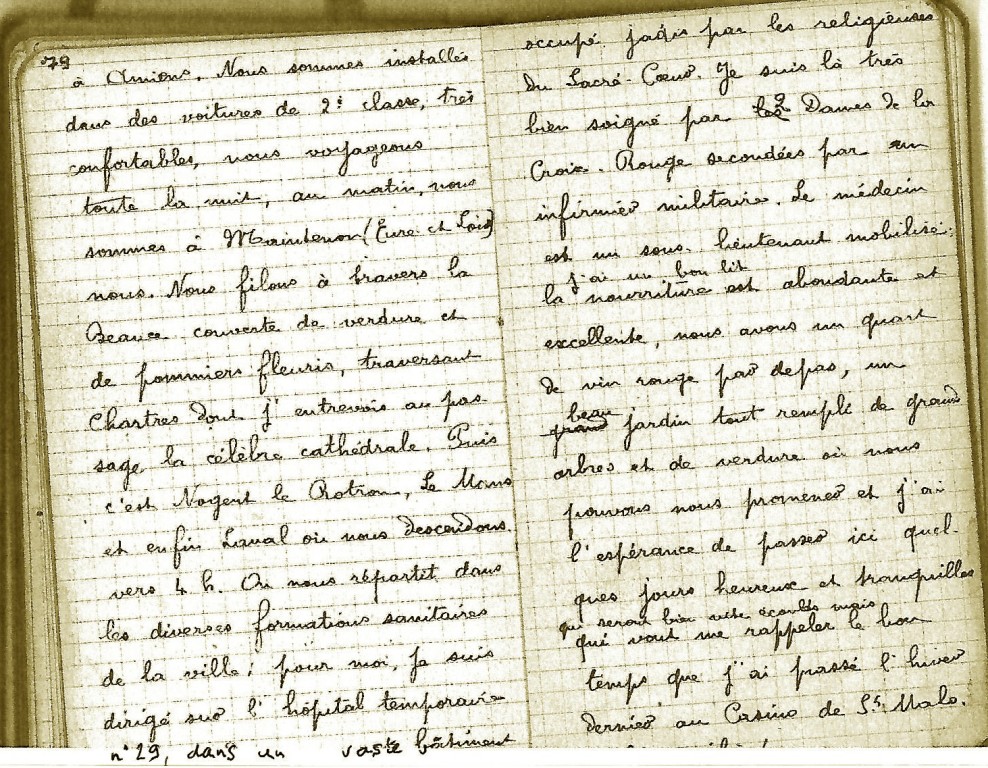 79
à Amiens. Nous sommes installés
dans des voitures de 2e classe, très
confortables, nous voyageons
toute la nuit, au matin, nous
sommes à Maintenon (Eure et Loir)
nous. Nous filons à travers la
Beauce couverte de verdure et
de pommiers fleuris, traversant
Chartres dont j'entrevois au pas-
sage, la célèbre cathédrale. Puis
c'est Nogent le Rotrou, Le Mans
et enfin Laval où nous descendons
vers 4 h. On nous répartit dans
les diverses formations sanitaires
de la ville ; pour moi, je suis
dirigé sur l'hôpital temporaire
n°29, dans un vaste bâtiment
occupé jadis par les religieuses
du Sacré-Cœur. Je suis là très
bien soigné par les 2 Dames de la
Croix-Rouge secondées par un
infirmier militaire. Le médecin
est un sous-lieutenant mobilisé :
j'ai un bon lit
la nourriture est abondante et
excellente, nous avons un quart
de vin rouge par repas, un
beau
grand jardin tout rempli de grands
arbres et de verdure où nous
pouvons nous promener et j'ai
l'espérance de passer ici quel-
ques jours heureux et tranquilles
qui seront bien vite écoulés mais
qui vont me rappeler le bon
temps que j'ai passé l'hiver
dernier au Casino de St Malo.